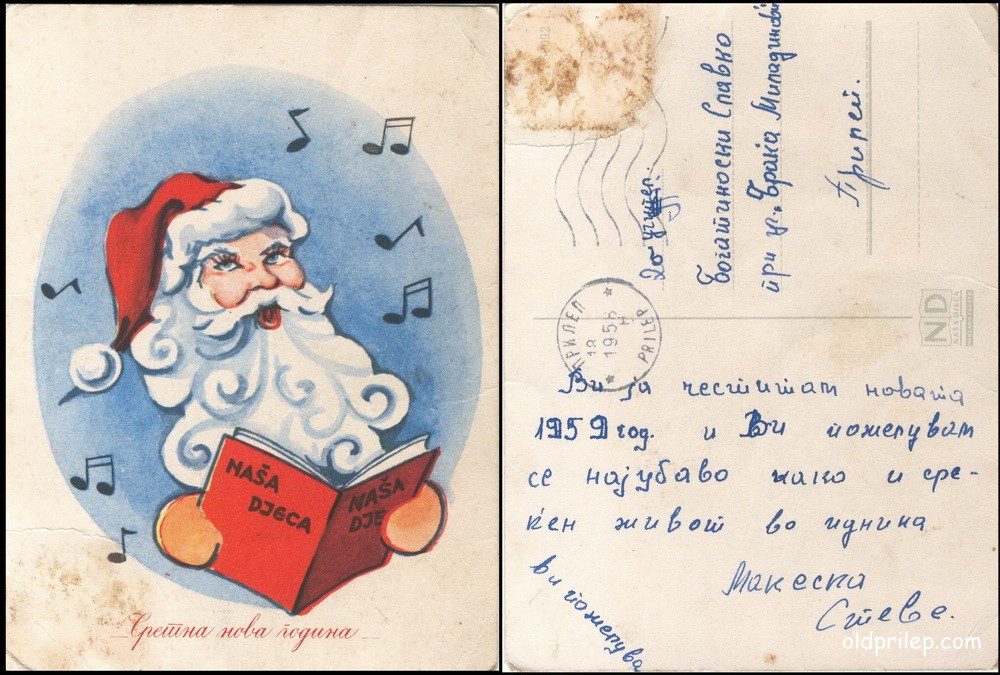 NAŠA
DJECA
NAŠA
DJE
Сретна нова година
До учител.
Богатиноски Славко
при уч. „Браќа Миладинови
Прилеп.
ПРИЛЕП
1958
PRILEP
ND
NAŠA DJECA
Ви ја честитам новата
1959 год. и Ви пожелувам
се најубаво како и сре-
ќен живот во иднина
ви пожелува
Макеска
Стеве.
oldprilep.com